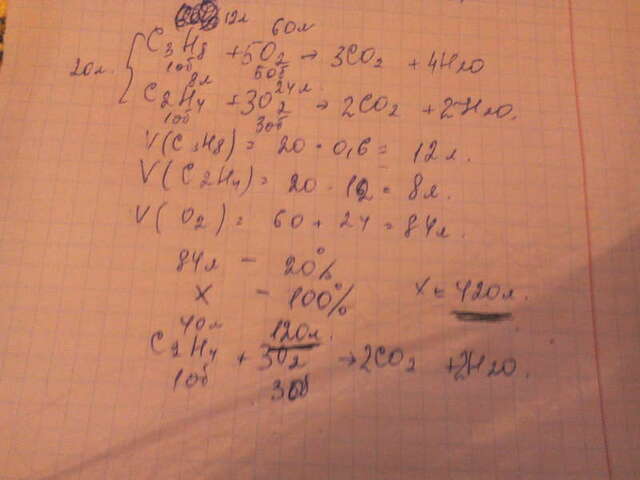 12л 60л
20л. { C3H8 + 5O2 → 3CO2 + 4H2O
1об 5об
8л 24л.
C2H4 + 3O2 → 2CO2 + 2H2O.
1об 3об
V(C3H8) = 20 · 0,6 = 12л.
V(C2H4) = 20 - 12 = 8л.
V(O2) = 60 + 24 = 84л.
84л - 20%
x - 100% x = 420л.
40л 120л.
C2H4 + 3O2 → 2CO2 + 2H2O.
1об 3об